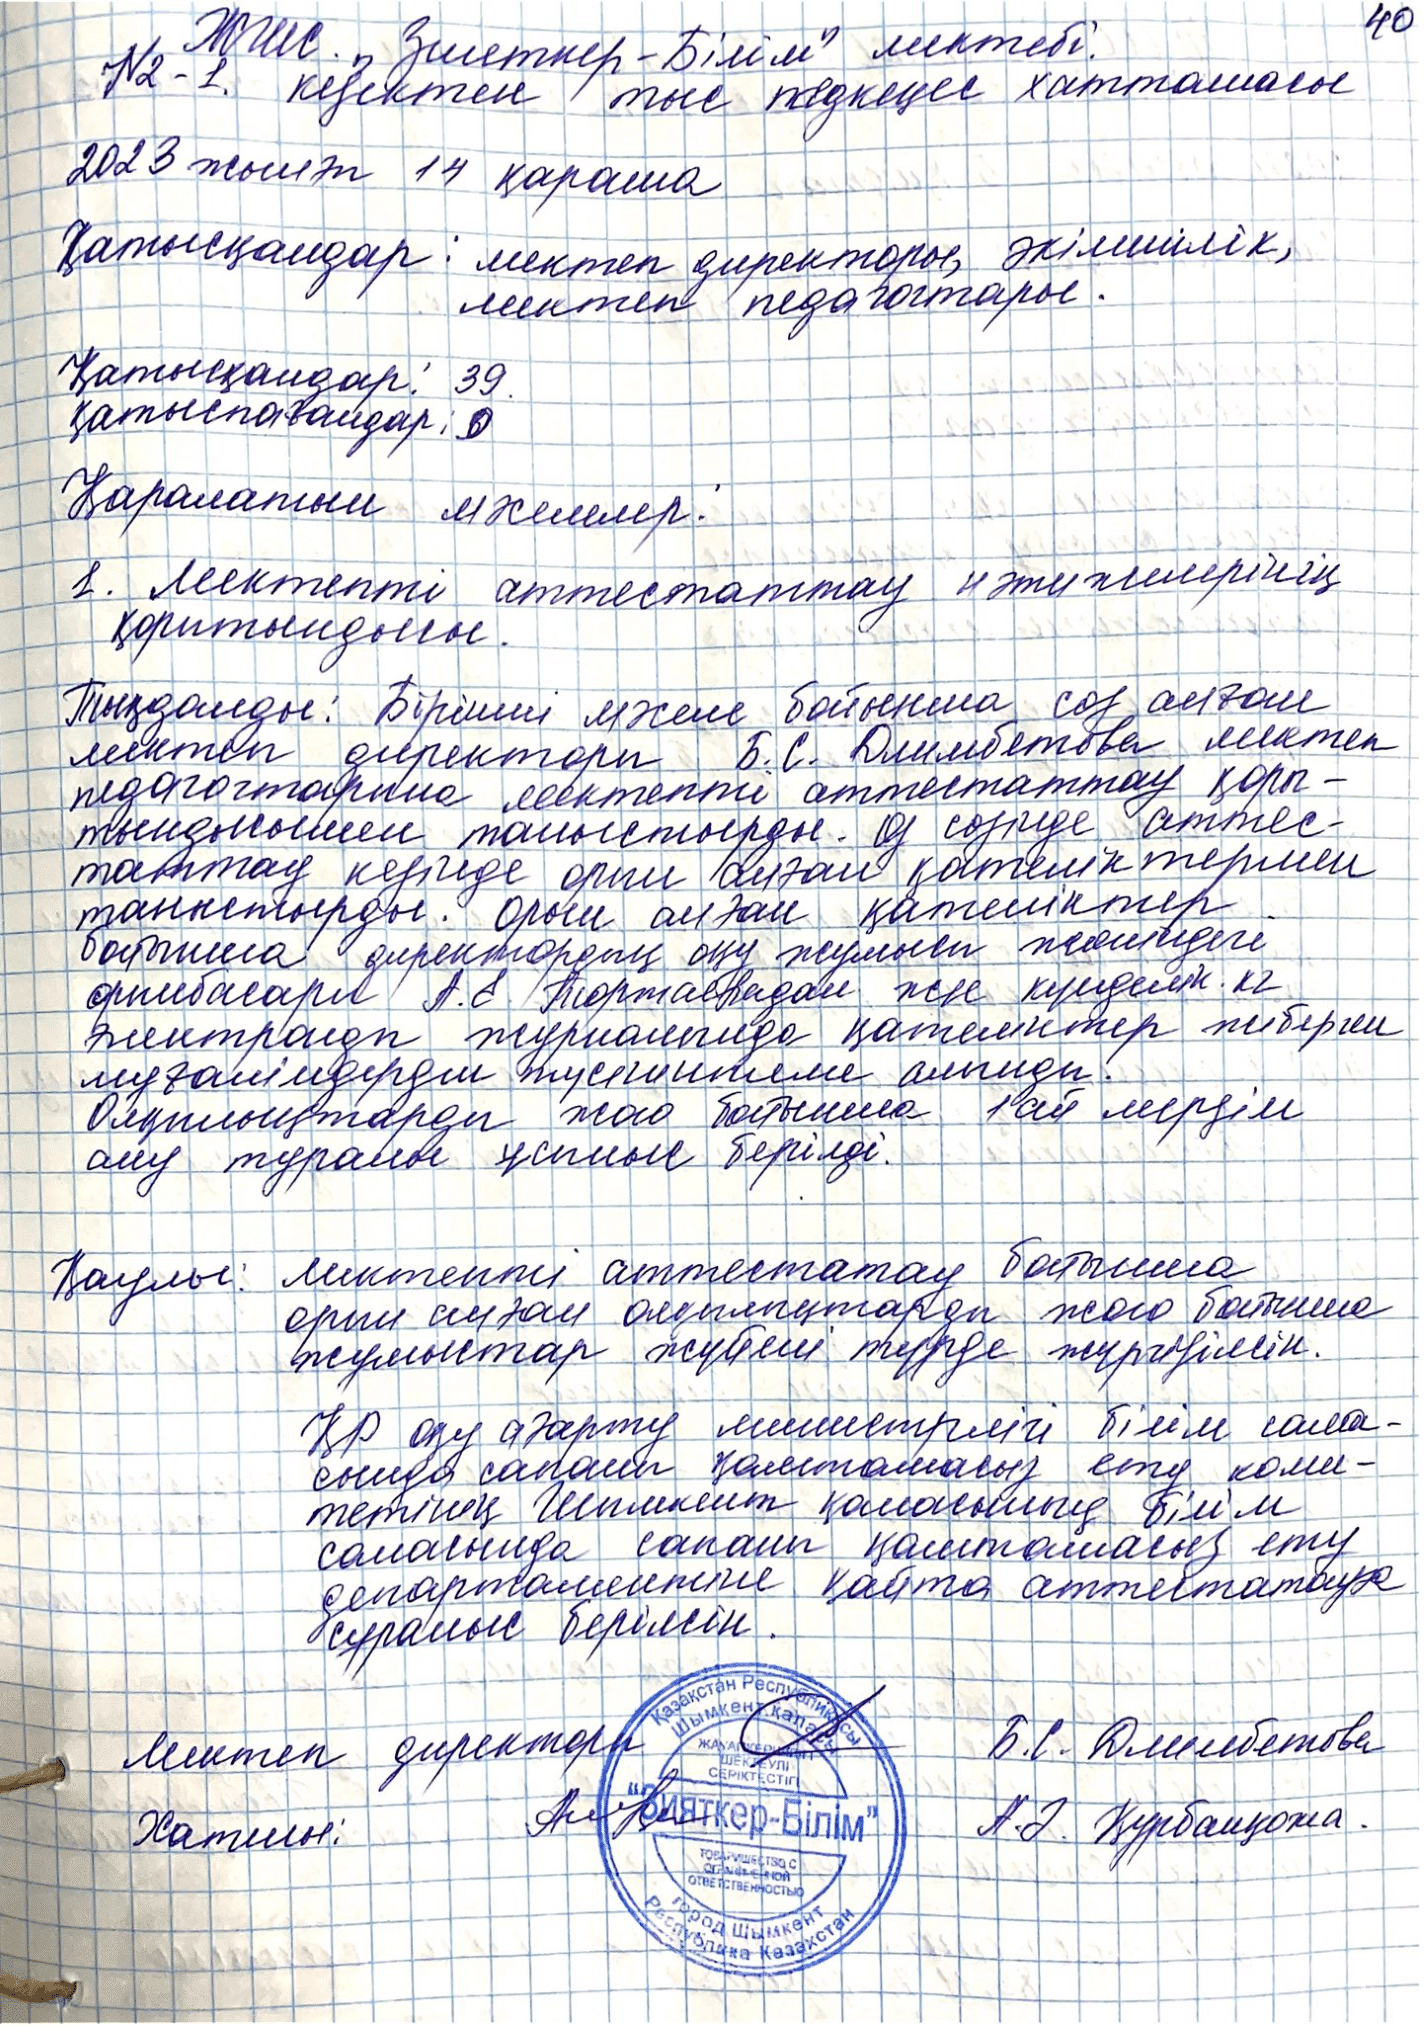 40
ЖШС. „Зияткер-Білім" мектебі.
№2-1. кезектен тыс педкеңес хаттамасы
2023 жылғы 14 қараша
Қатысқандар: мектеп директоры, әкімшілік,
мектеп педагогтары.
Қатысқандар: 39.
Қатыспағандар: 0
Қаралатын мәселелер:
1. Мектепті аттестаттау нәтижелерінің
қорытындысы.
Тыңдалды: Бірінші мәселе бойынша сөз алған
мектеп директоры Б.С. Длимбетова мектеп
педагогтарына мектепті аттестаттау қоры-
тындысымен таныстырды. Өз сөзінде аттес-
таттау кезінде орын алған қателіктермен
таныстырды. Орын алған қателіктер
бойынша директордың оқу жұмысы жөніндегі
орынбасары А.Е. және күнделік.кz
электронды журналында қателіктер жіберген
мұғалімдерден түсініктеме алынды.
Олқылықтарды жою бойынша 1 ай мерзім
алу туралы ұсыныс берілді.
Қаулы: Мектепті аттестатау бойынша
орын алған олқылықтарды жою бойынша
жұмыстар жүйелі түрде жүргізілсін.
ҚР оқу ағарту министрлігі білім сала-
сында сапаны қамтамасыз ету коми-
тетінің Шымкент қаласының білім
саласында сапаны қамтамасыз ету
департаментіне қайта аттестатауға
сұраныс берілсін.
Мектеп директоры Б.С. Длимбетова
Хатшы: А.Ә. Құрбанқожа.
Қазақстан Республикасы
Шымкент қаласы
ЖАУАПКЕРШІЛІГІ
ШЕКТЕУЛІ
СЕРІКТЕСТІГІ
"Зияткер-Білім"
ТОВАРИЩЕСТВО С
ОГРАНИЧЕННОЙ
ОТВЕТСТВЕННОСТЬЮ
город Шымкент
Республика Казахстан